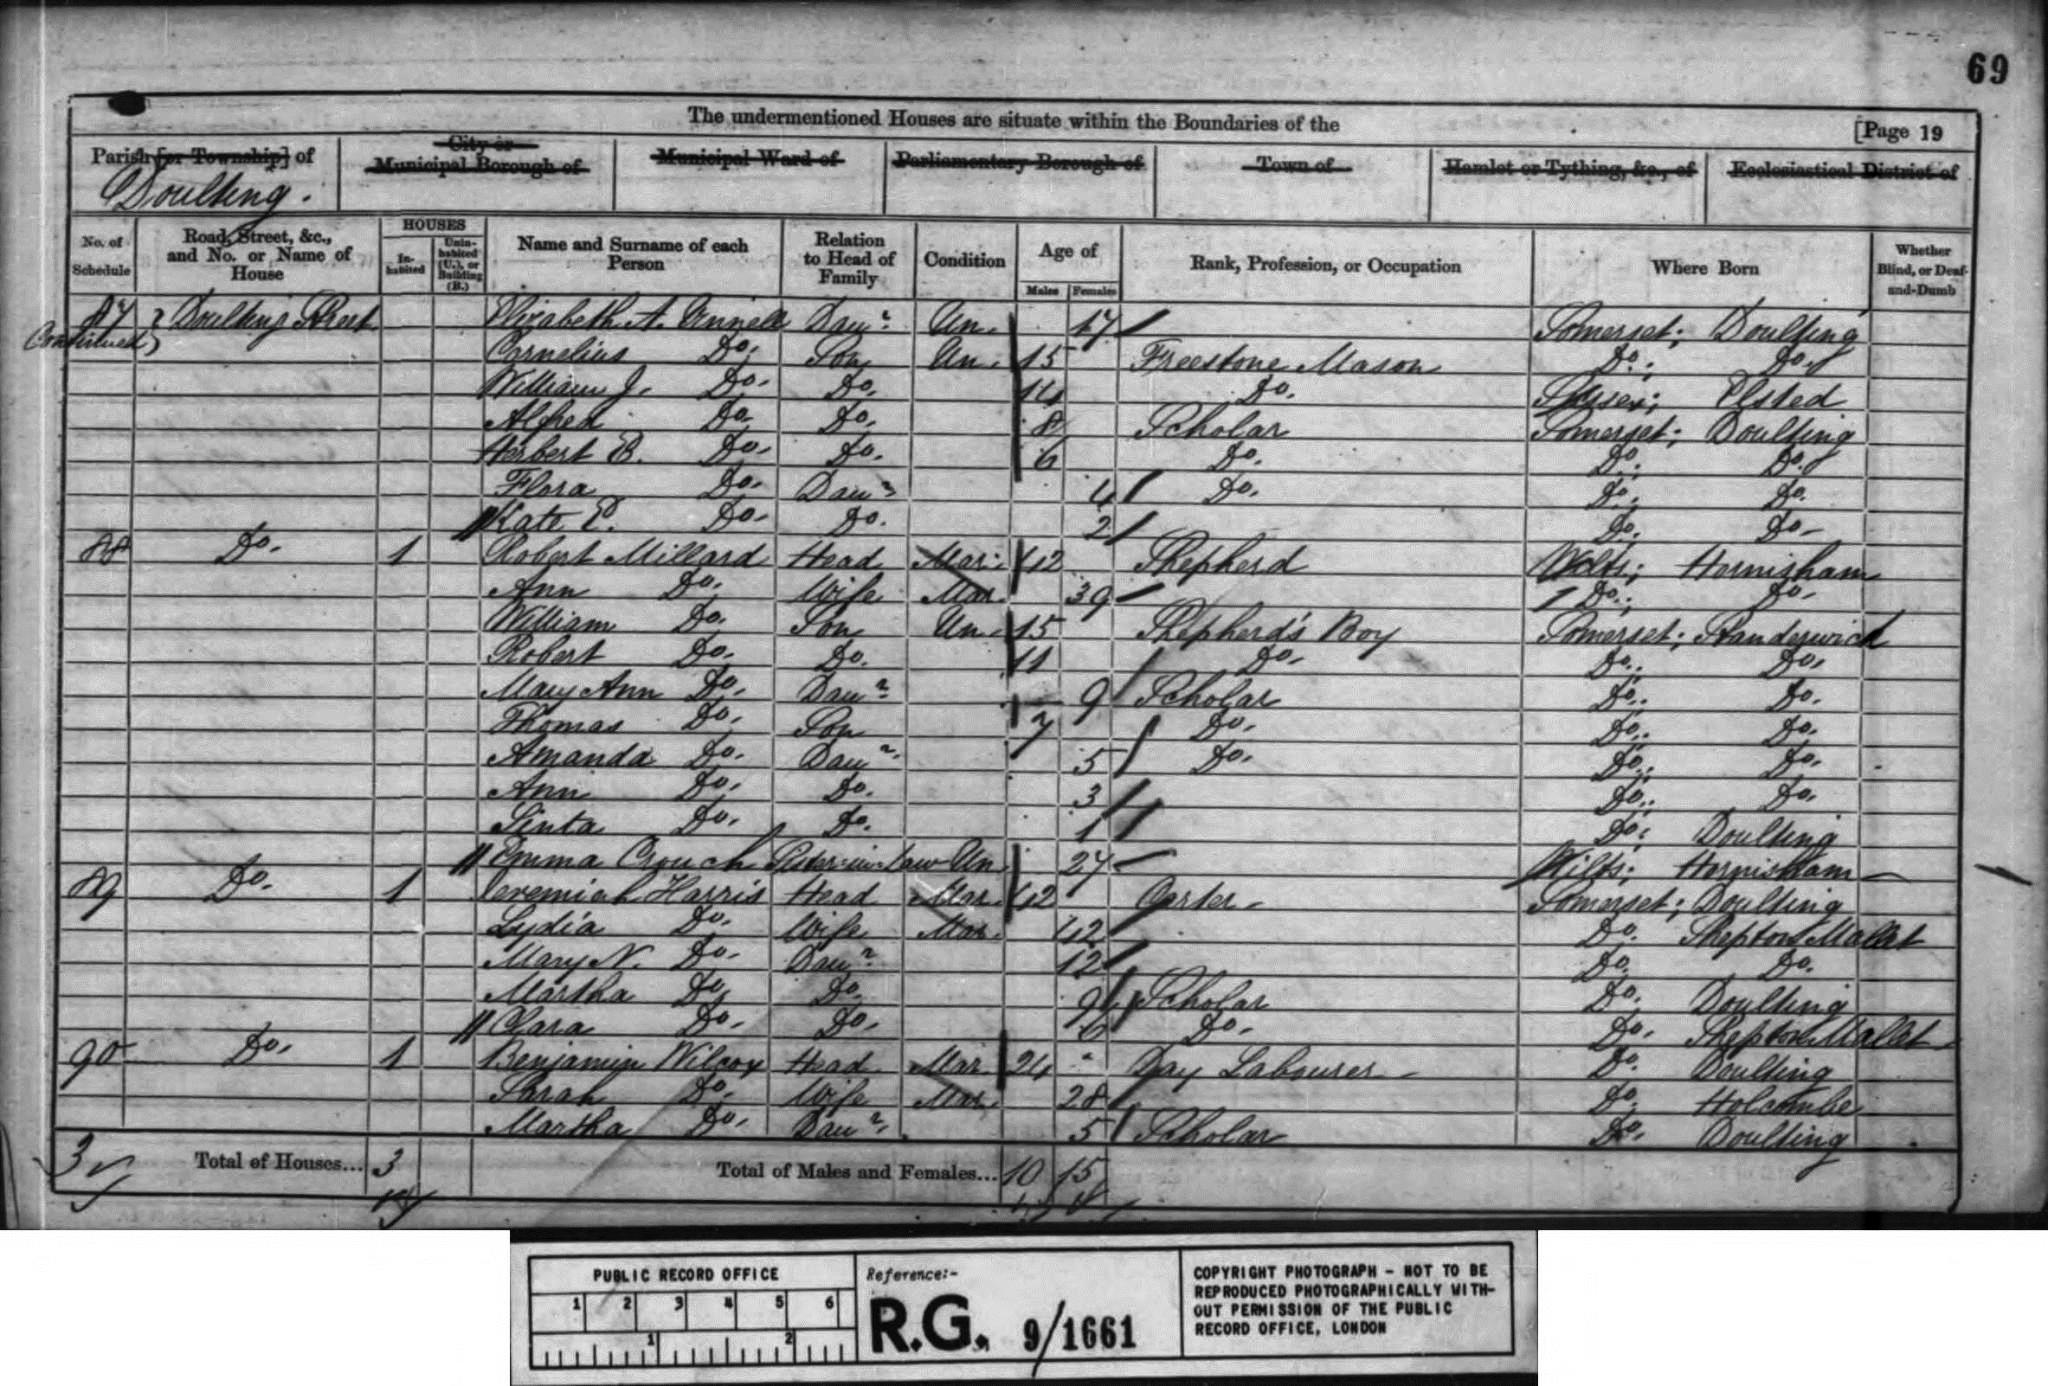 69
The undermentioned Houses are situate within the Boundaries of the
[Page 19
Parish [or Township] of
City or Municipal Borough of
Municipal Ward of
Parliamentary Borough of
Town of
Hamlet or Tything, &c., of
Ecclesiastical District of
Doulting.
No. of Schedule
Road, Street, &c., and No. or Name of House
HOUSES
In-habited
Unin-habited (U.), or Building (B.)
Name and Surname of each Person
Relation to Head of Family
Condition
Age of
Males
Females
Rank, Profession, or Occupation
Where Born
Whether Blind, or Deaf-and-Dumb
87 Continued } Doulting Street Elizabeth A. Daur. Un. 17 Somerset; Doulting
Cornelius Do. Son Un. 15 Freestone Mason Do.; Do.
William J. Do. Do. 14 Do. Sussex; Elsted
Alfred Do. Do. 8 Scholar Somerset; Doulting
Herbert E. Do. Do. 6 Do. Do. Do.
Flora Do. Daur 4 Do. Do.; Do.
Kate E. Do. Do. 2 Do. Do.
88 Do. 1 Robert Millard Head Mar. 42 Shepherd Wilts; Hornisham
Ann Do. Wife Mar. 39 Do.; Do.
William Do. Son Un. 15 Shepherd's Boy Somerset; Standerwick
Robert Do. Do. 11 Do. Do.; Do.
Mary Ann Do. Daur. 9 Scholar Do.; Do.
Thomas Do. Son 7 Do. Do.; Do.
Amanda Do. Daur. 5 Do. Do.; Do.
Ann Do. Do. 3 Do.; Do.
Do. Do. 1 Do.; Doulting
Emma Crouch Sister-in-law Un. 27 Wilts; Hornisham
89 Do. 1 Jeremiah Harris Head Mar. 42 Carter Somerset; Doulting
Lydia Do. Wife Mar. 42 Do. Shepton Mallet
Mary N. Do. Daur. 12 Do. Do.
Martha Do. Do. 9 Scholar Do. Doulting
Clara Do. Do. 6 Do. Do. Shepton Mallet
90 Do. 1 Benjamin Wilcox Head Mar. 24 Day Labourer Do. Doulting
Sarah Do. Wife Mar. 28 Do. Holcombe
Martha Do. Daur. 5 Scholar Do. Doulting
3 Total of Houses... 3 Total of Males and Females... 10 15
PUBLIC RECORD OFFICE
1 2 3 4 5 6
1 2
Reference:-
R.G. 9/1661
COPYRIGHT PHOTOGRAPH - NOT TO BE
REPRODUCED PHOTOGRAPHICALLY WITH-
OUT PERMISSION OF THE PUBLIC
RECORD OFFICE, LONDON